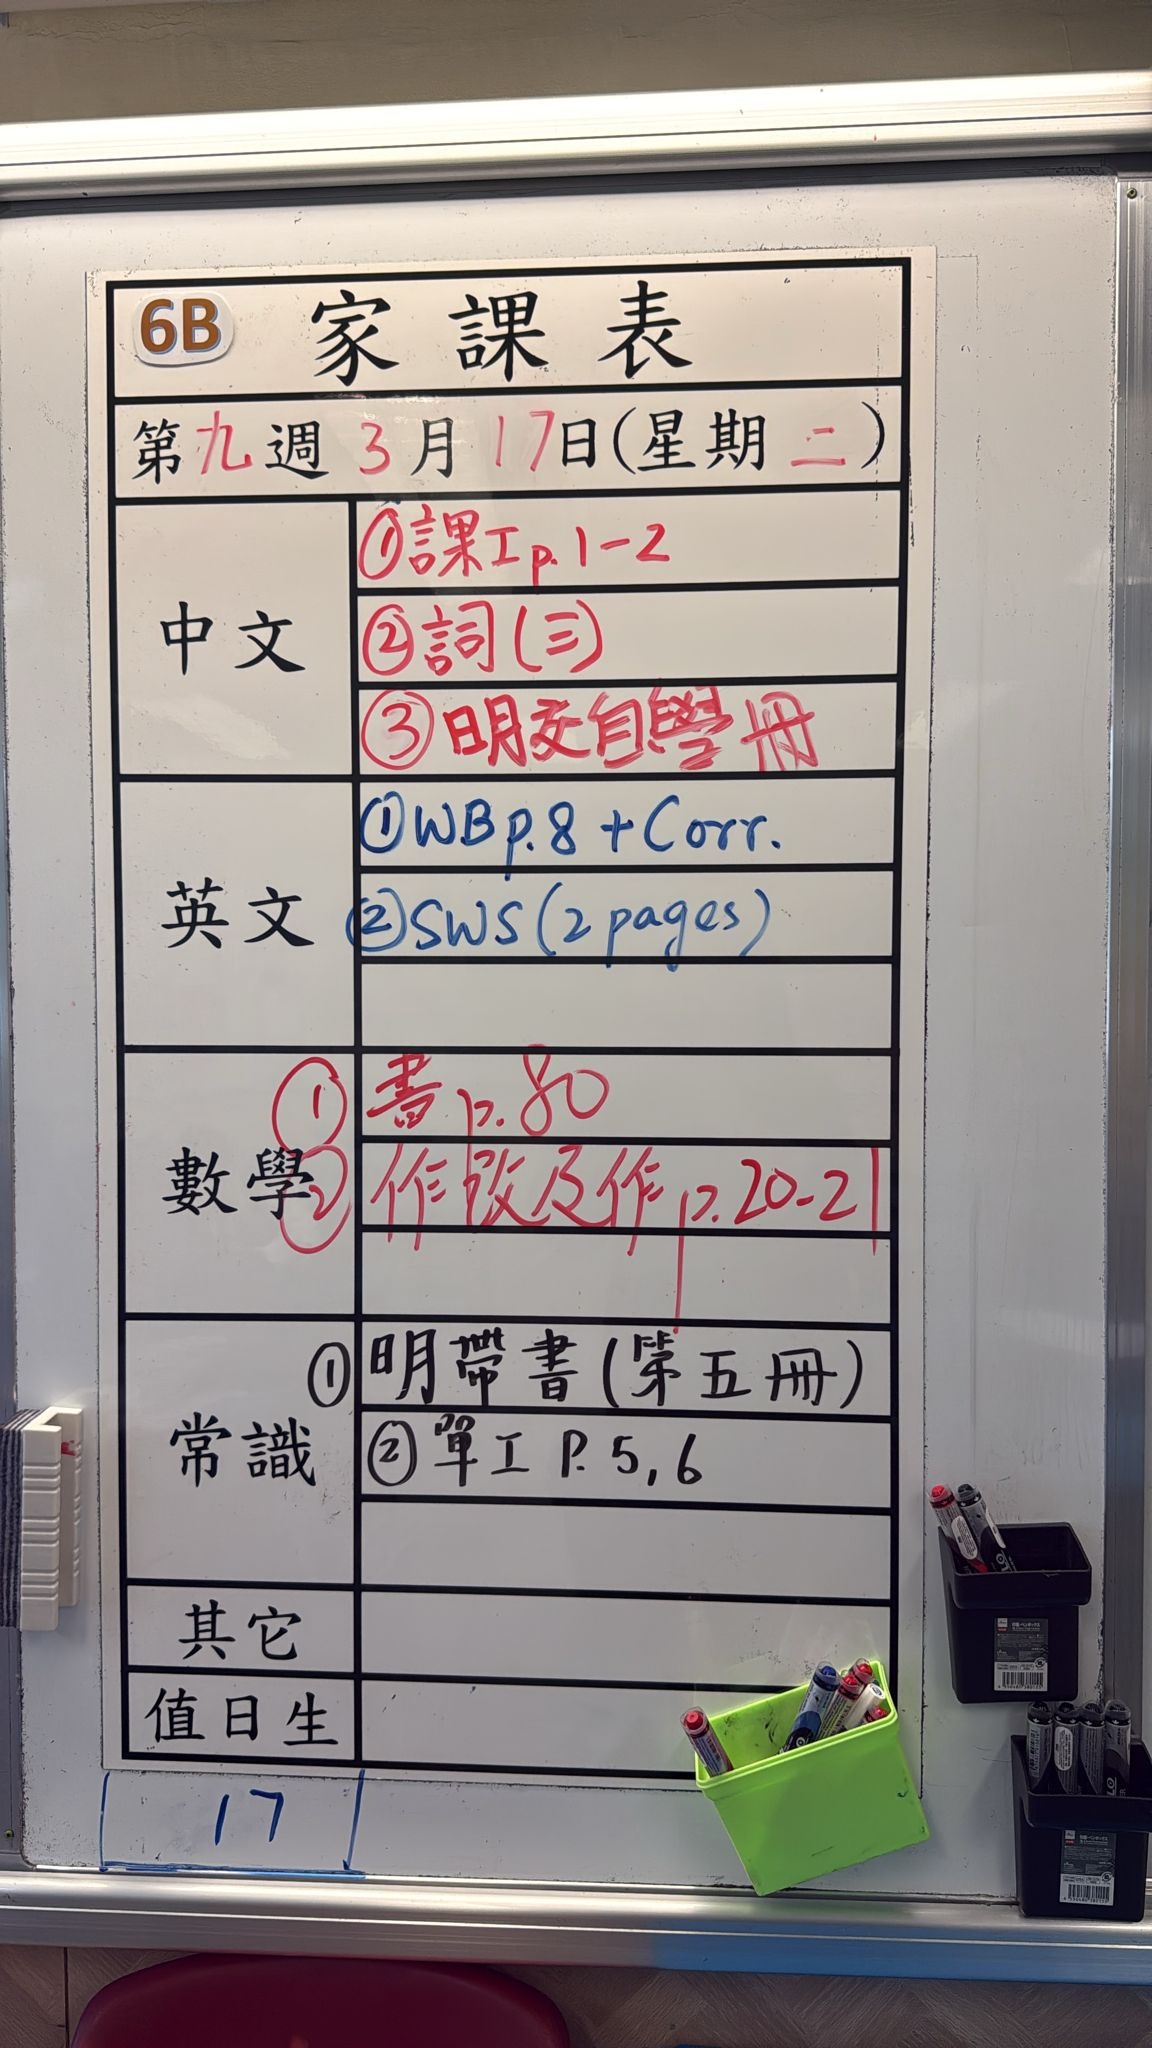 6B 家課表
第九週 3月17日(星期二)
中文
①課工p.1-2
②詞(三)
③明交自學冊
英文
①WBp.8 + Corr.
②SWS (2 pages)
數學
① 書p.80
② 作改及作p.20-21
常識
① 明帶書(第五冊)
② 單工 P.5,6
其它
值日生
17